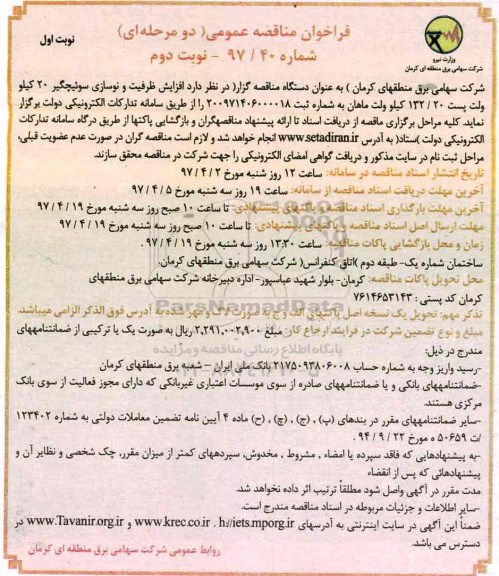 فراخوان مناقصه عمومی( دو مرحله‌ای)
نوبت اول
شماره ۴۰ / ۹۷ - نوبت دوم
وزارت نیرو
شرکت سهامی برق منطقه ای کرمان
شرکت سهامی برق منطقهای کرمان ) به عنوان دستگاه مناقصه گزار( در نظر دارد افزایش ظرفیت و نوسازی سوئیچگیر ۲۰ کیلو
ولت پست ۲۰ / ۱۳۲ کیلو ولت ماهان به شماره ثبت ۲۰۰۹۷۱۴۰۶۰۰۰۰۱۸ را از طریق سامانه تدارکات الکترونیکی دولت برگزار
نماید. کلیه مراحل برگزاری ماقصه از دریافت اسناد تا ارائه پیشنهاد مناقصهگران و بازگشایی پاکتها از طریق درگاه سامانه تدارکات
الکترونیکی دولت )ستاد( به آدرس www.setadiran.ir انجام خواهد شد و لازم است مناقصه گران در صورت عدم عضویت قبلی،
مراحل ثبت نام در سایت مذکور و دریافت گواهی امضای الکترونیکی را جهت شرکت در مناقصه محقق سازند.
تاریخ انتشار اسناد مناقصه در سامانه: ساعت ۱۲ روز شنبه مورخ ۲ / ۴ / ۹۷
آخرین مهلت دریافت اسناد مناقصه از سامانه: ساعت ۱۹ روز سه شنبه مورخ ۵ / ۴ / ۹۷
آخرین مهلت بارگذاری اسناد مناقصه و پاکتهای پیشنهادی: تا ساعت ۱۰ صبح روز سه شنبه مورخ ۱۹ / ۴ / ۹۷
مهلت ارسال اصل اسناد مناقصه و پاکتهای پیشنهادی: تا ساعت ۱۰ صبح روز سه شنبه مورخ ۱۹ / ۴ / ۹۷
زمان و محل بازگشایی پاکات مناقصه: ساعت ۱۳:۳۰ روز سه شنبه مورخ ۱۹ / ۴ / ۹۷ .
ساختمان شماره یک- طبقه دوم )اتاق کنفرانس( شرکت سهامی برق منطقهای کرمان.
محل تحویل پاکات مناقصه: کرمان- بلوار شهید عباسپور- اداره دبیرخانه شرکت سهامی برق منطقهای
کرمان کد پستی : ۷۶۱۴۶۵۳۱۴۳
تذکر مهم: تحویل یک نسخه اصل پاکتهای الف و ج به صورت لاک و مهر شده به آدرس فوق الذکر الزامی میباشد.
مبلغ و نوع تضمین شرکت در فرایند ارجاع کار: مبلغ ۲,۲۹۱,۰۰۲,۹۰۰ ریال به صورت یک یا ترکیبی از ضمانتنامههای
مندرج در ذیل:
-رسید واریز وجه به شماره حساب ۲۱۷۵۰۹۳۸۰۶۰۰۸ بانک ملی ایران – شعبه برق منطقهای کرمان
-ضمانتنامههای بانکی و یا ضمانتنامههای صادره از سوی موسسات اعتباری غیربانکی که دارای مجوز فعالیت از سوی بانک
مرکزی هستند.
-سایر ضمانتنامههای مقرر در بندهای (پ) , (ج), (چ) , (ح) ماده ۴ آیین نامه تضمین معاملات دولتی به شماره ۱۲۳۴۰۲
/ت ۵۰۶۵۹ ه مورخ ۲۲ / ۹ / ۹۴ .
-به پیشنهادهایی که فاقد سپرده یا امضاء , مشروط , مخدوش, سپردههای کمتر از میزان مقرر, چک شخصی و نظایر آن و
پیشنهادهائی که پس از انقضاء
مدت مقرر در آگهی واصل شود مطلقاً ترتیب اثر داده نخواهد شد.
-سایر اطلاعات و جزئیات مربوطه در اسناد مناقصه مندرج است.
ضمناً این آگهی در سایت اینترنتی به آدرسهای www.krec.co.ir . h://iets.mporg.ir و www.Tavanir.org.ir در
دسترس می باشد.
روابط عمومی شرکت سهامی برق منطقه ای کرمان
ParsNamadData
پایگاه اطلاع رسانی مناقصه و مزایده